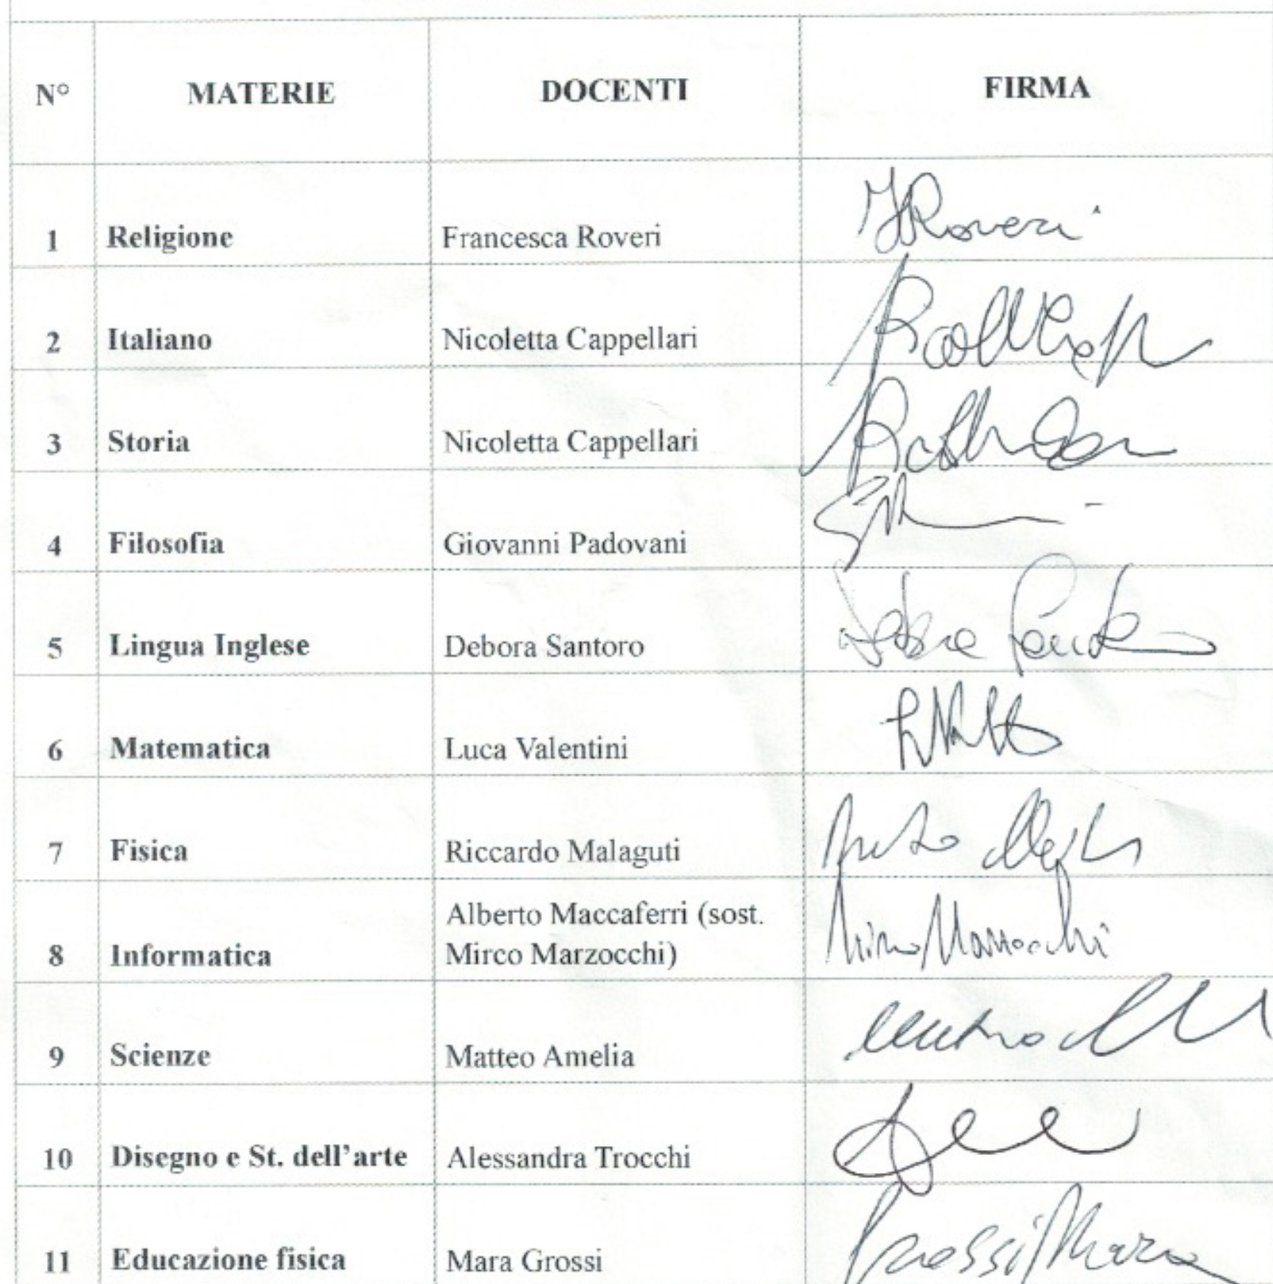 N° MATERIE DOCENTI FIRMA
1 Religione Francesca Roveri FRoveri
2 Italiano Nicoletta Cappellari
3 Storia Nicoletta Cappellari
4 Filosofia Giovanni Padovani
5 Lingua Inglese Debora Santoro
6 Matematica Luca Valentini
7 Fisica Riccardo Malaguti
8 Informatica Alberto Maccaferri (sost.
Mirco Marzocchi) Mirco Marzocchi
9 Scienze Matteo Amelia
10 Disegno e St. dell'arte Alessandra Trocchi
11 Educazione fisica Mara Grossi Grossi Mara